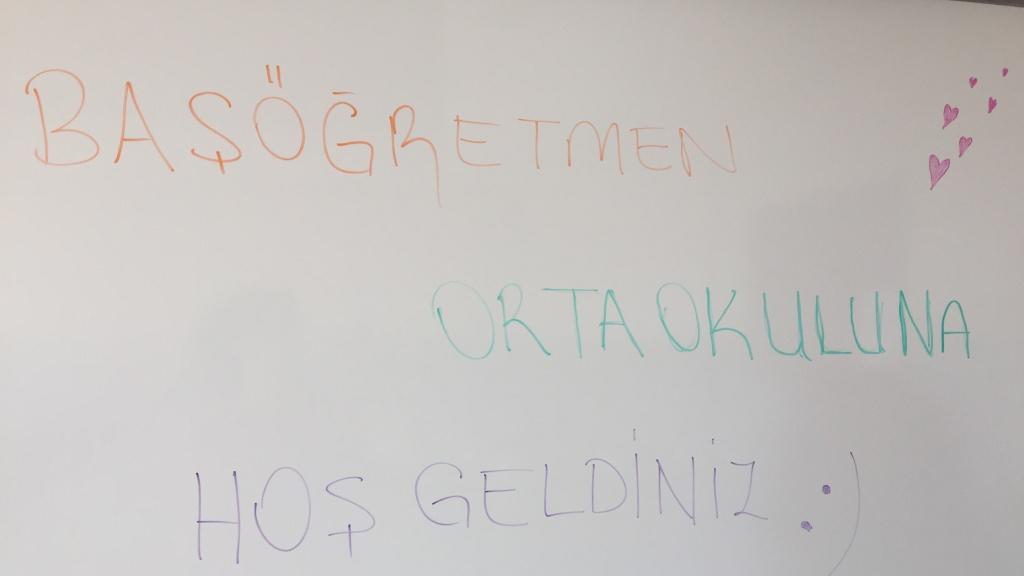 BAŞÖĞRETMEN
ORTAOKULUNA
HOŞ GELDİNİZ :)